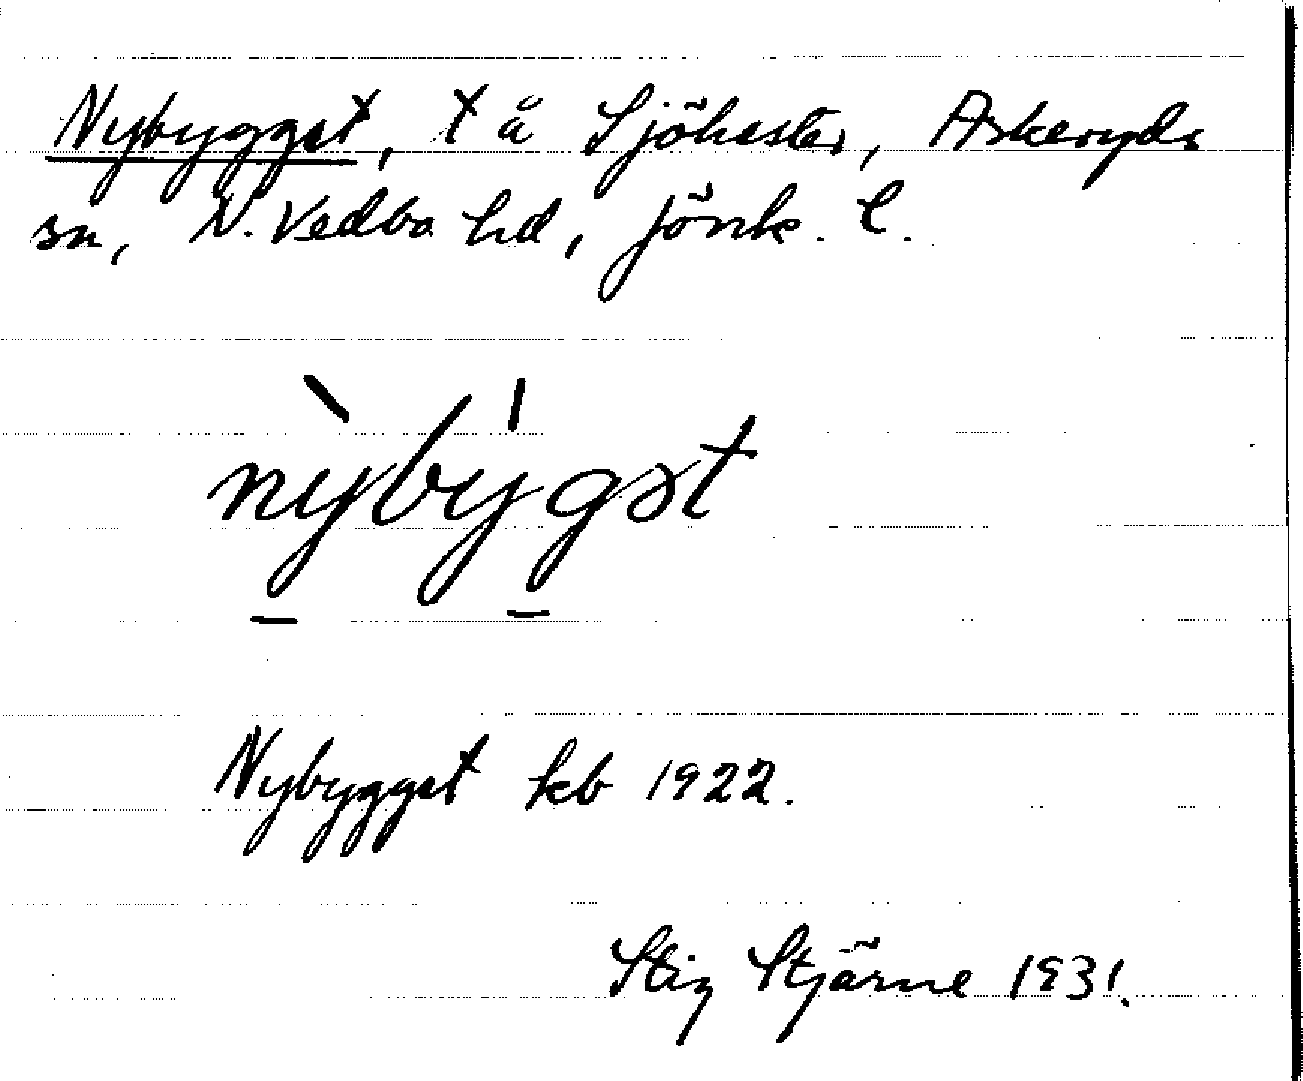 Nybygget, t å Sjöhester, Askeryds
sn, N. Vedbo hd, Jönk. l.
nỳbýgət
Nybygget kb 1922.
Stig Stjärne 1931.